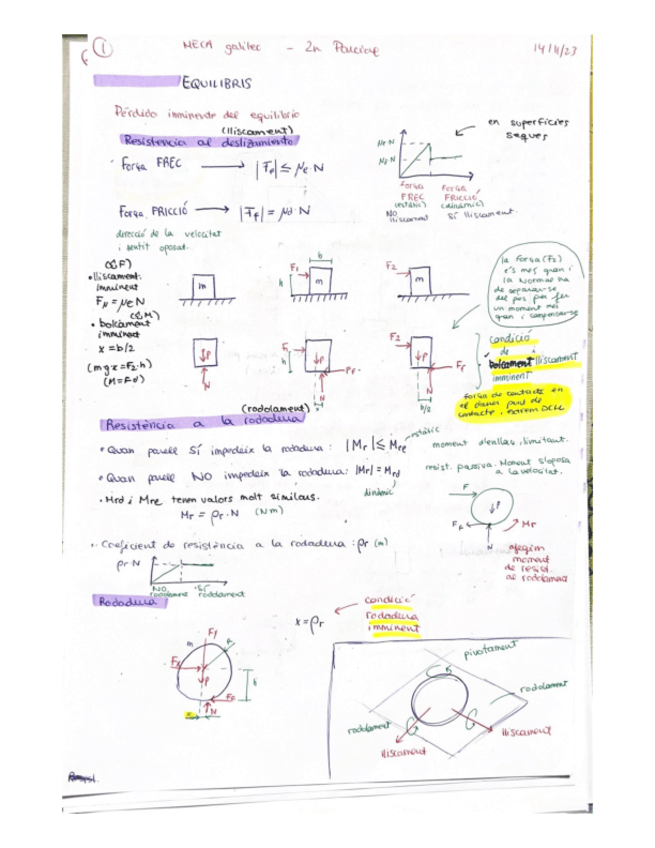 ① MECA galilec - 2n Parcial 14/11/23
EQUILIBRIS
Pérdida inminente del equilibrio
(lliscament)
Resistencia al deslizamiento
Força FREC → |Fe| ≤ μe·N
Força FRICCIÓ → |Ff| = μd·N
direcció de la velocitat
i sentit oposat.
en superfícies
seques
μe·N
μd·N
força
FREC
(estàtic)
NO
lliscament
força
FRICCIÓ
(dinàmic)
Sí lliscament.
(ΣF)
• lliscament
imminent
FN = μeN
(ΣM)
• bolcament
imminent
x = b/2
(mgx = F2·h)
(M = F·d)
m
F1
b
h
m
F2
m
P
N
F1
h
P
N
x
F2
P
Fr
N
b/2
la força (F2)
és més gran i
la Normal ha
de separar-se
del pes per fer
un moment més
gran i compensar-se
condició
de
bolcament i lliscament
imminent
força de contacte en
el darrer punt de
contacte, extrem
(rodolament)
Resistència a la rodadura
• Quan parell SÍ impedeix la rodadura: |Mr| ≤ Mre
estàtic
moment d'enllaç, limitant.
• Quan parell NO impedeix la rodadura: |Mr| = Mrd
dinàmic
resist. passiva. Moment s'oposa
a la velocitat.
• Mrd i Mre tenen valors molt similars.
Mr = ρr·N (Nm)
F
P
N
Mr
afegim
moment
de resist.
al rodolament
• Coeficient de resistència a la rodadura: ρr (m)
ρr N
NO
rodolament
Sí
rodolament
Rodadura
x = ρr
condició
rodadura
imminent
m
Fy
R
Fx
P
h
N
x
pivotament
rodolament
rodolament
lliscament
lliscament